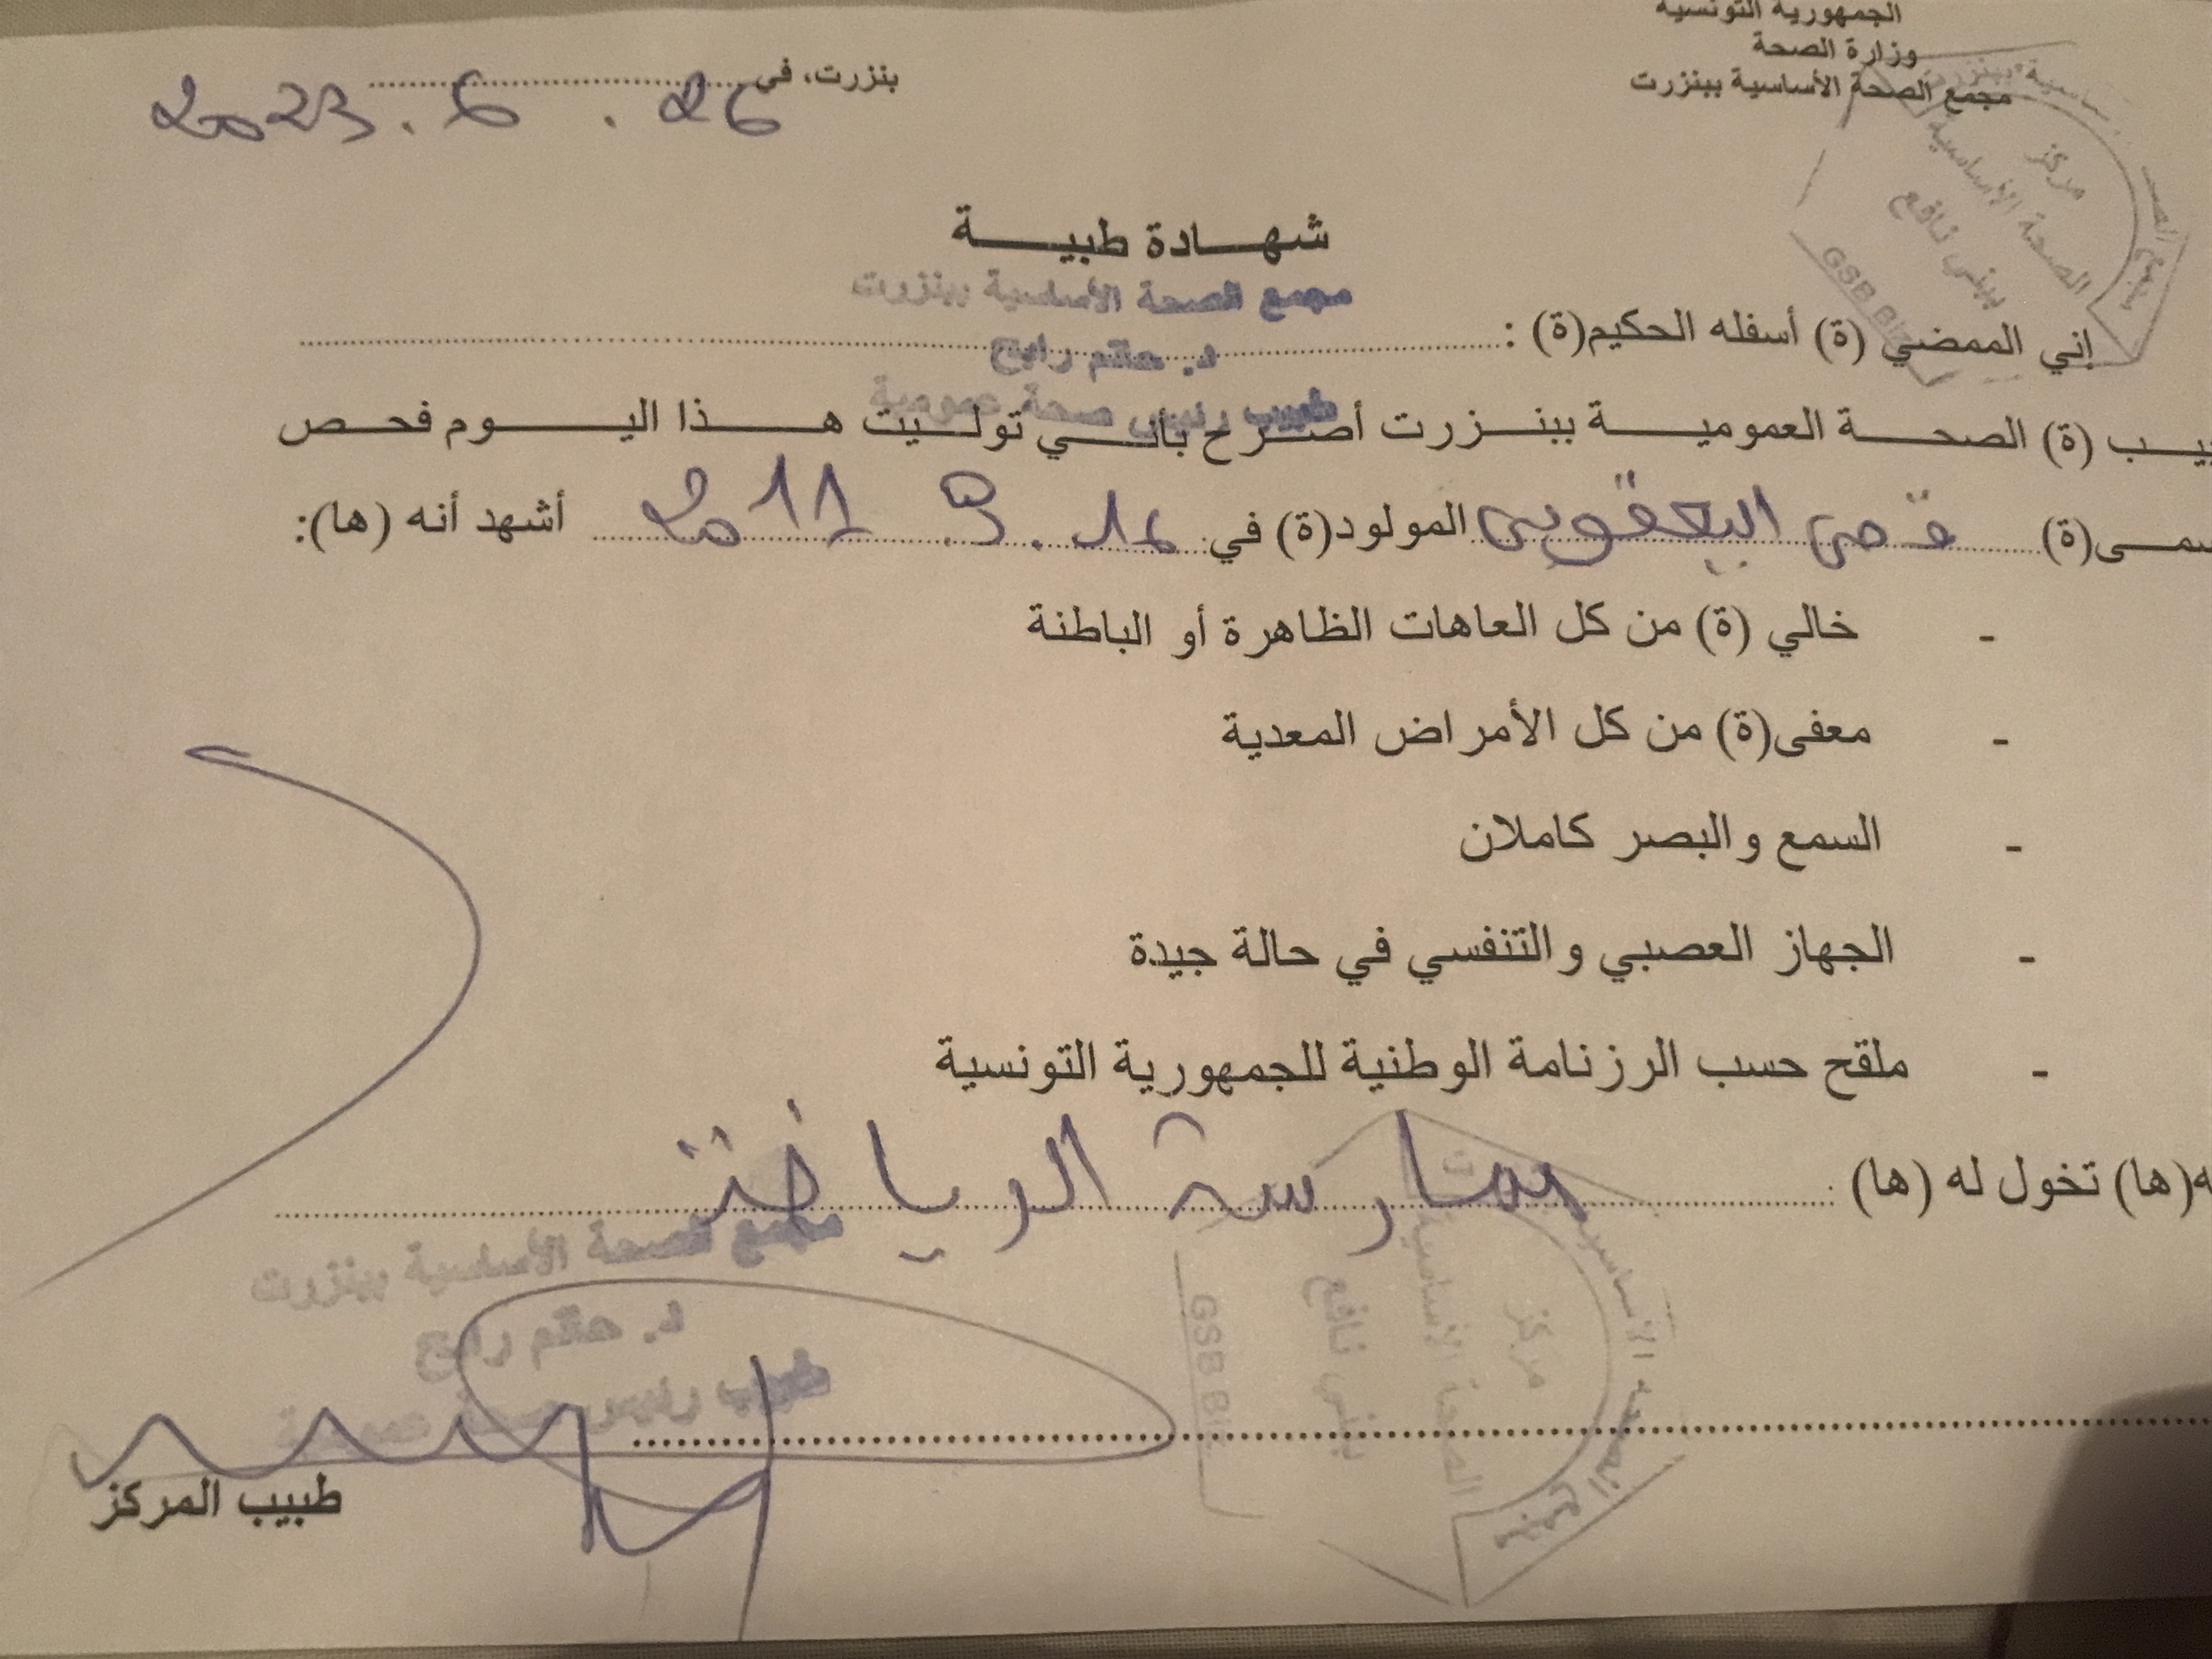 الجمهورية التونسية
وزارة الصحة
مجمع الصحة الأساسية ببنزرت
بنزرت، في 26 . 6 . 2023
مركز
الصحة الأساسية
ببني نافع
GSB Biz
شهـــادة طبيـــة
مجمع الصحة الأساسية ببنزرت
د. حاتم رابح
طبيب رئيس صحة عمومية
إني الممضي (ة) أسفله الحكيم(ة) :
ـيـب (ة) الصحـة العموميـة ببنـزرت أصـرح بأنـي توليت هـذا اليـوم فحـص
ـسمـى(ة) قصي اليعقوبي المولود(ة) في: 16 . 9 . 2011 أشهد أنه (ها):
- خالي (ة) من كل العاهات الظاهرة أو الباطنة
- معفى(ة) من كل الأمراض المعدية
- السمع والبصر كاملان
- الجهاز العصبي والتنفسي في حالة جيدة
- ملقح حسب الرزنامة الوطنية للجمهورية التونسية
ـه(ها) تخول له (ها) : ممارسة الرياضة
مجمع الصحة الأساسية ببنزرت
د. حاتم رابح
طبيب رئيس صحة عمومية
مركز
الصحة الأساسية
ببني نافع
GSB Biz
طبيب المركز